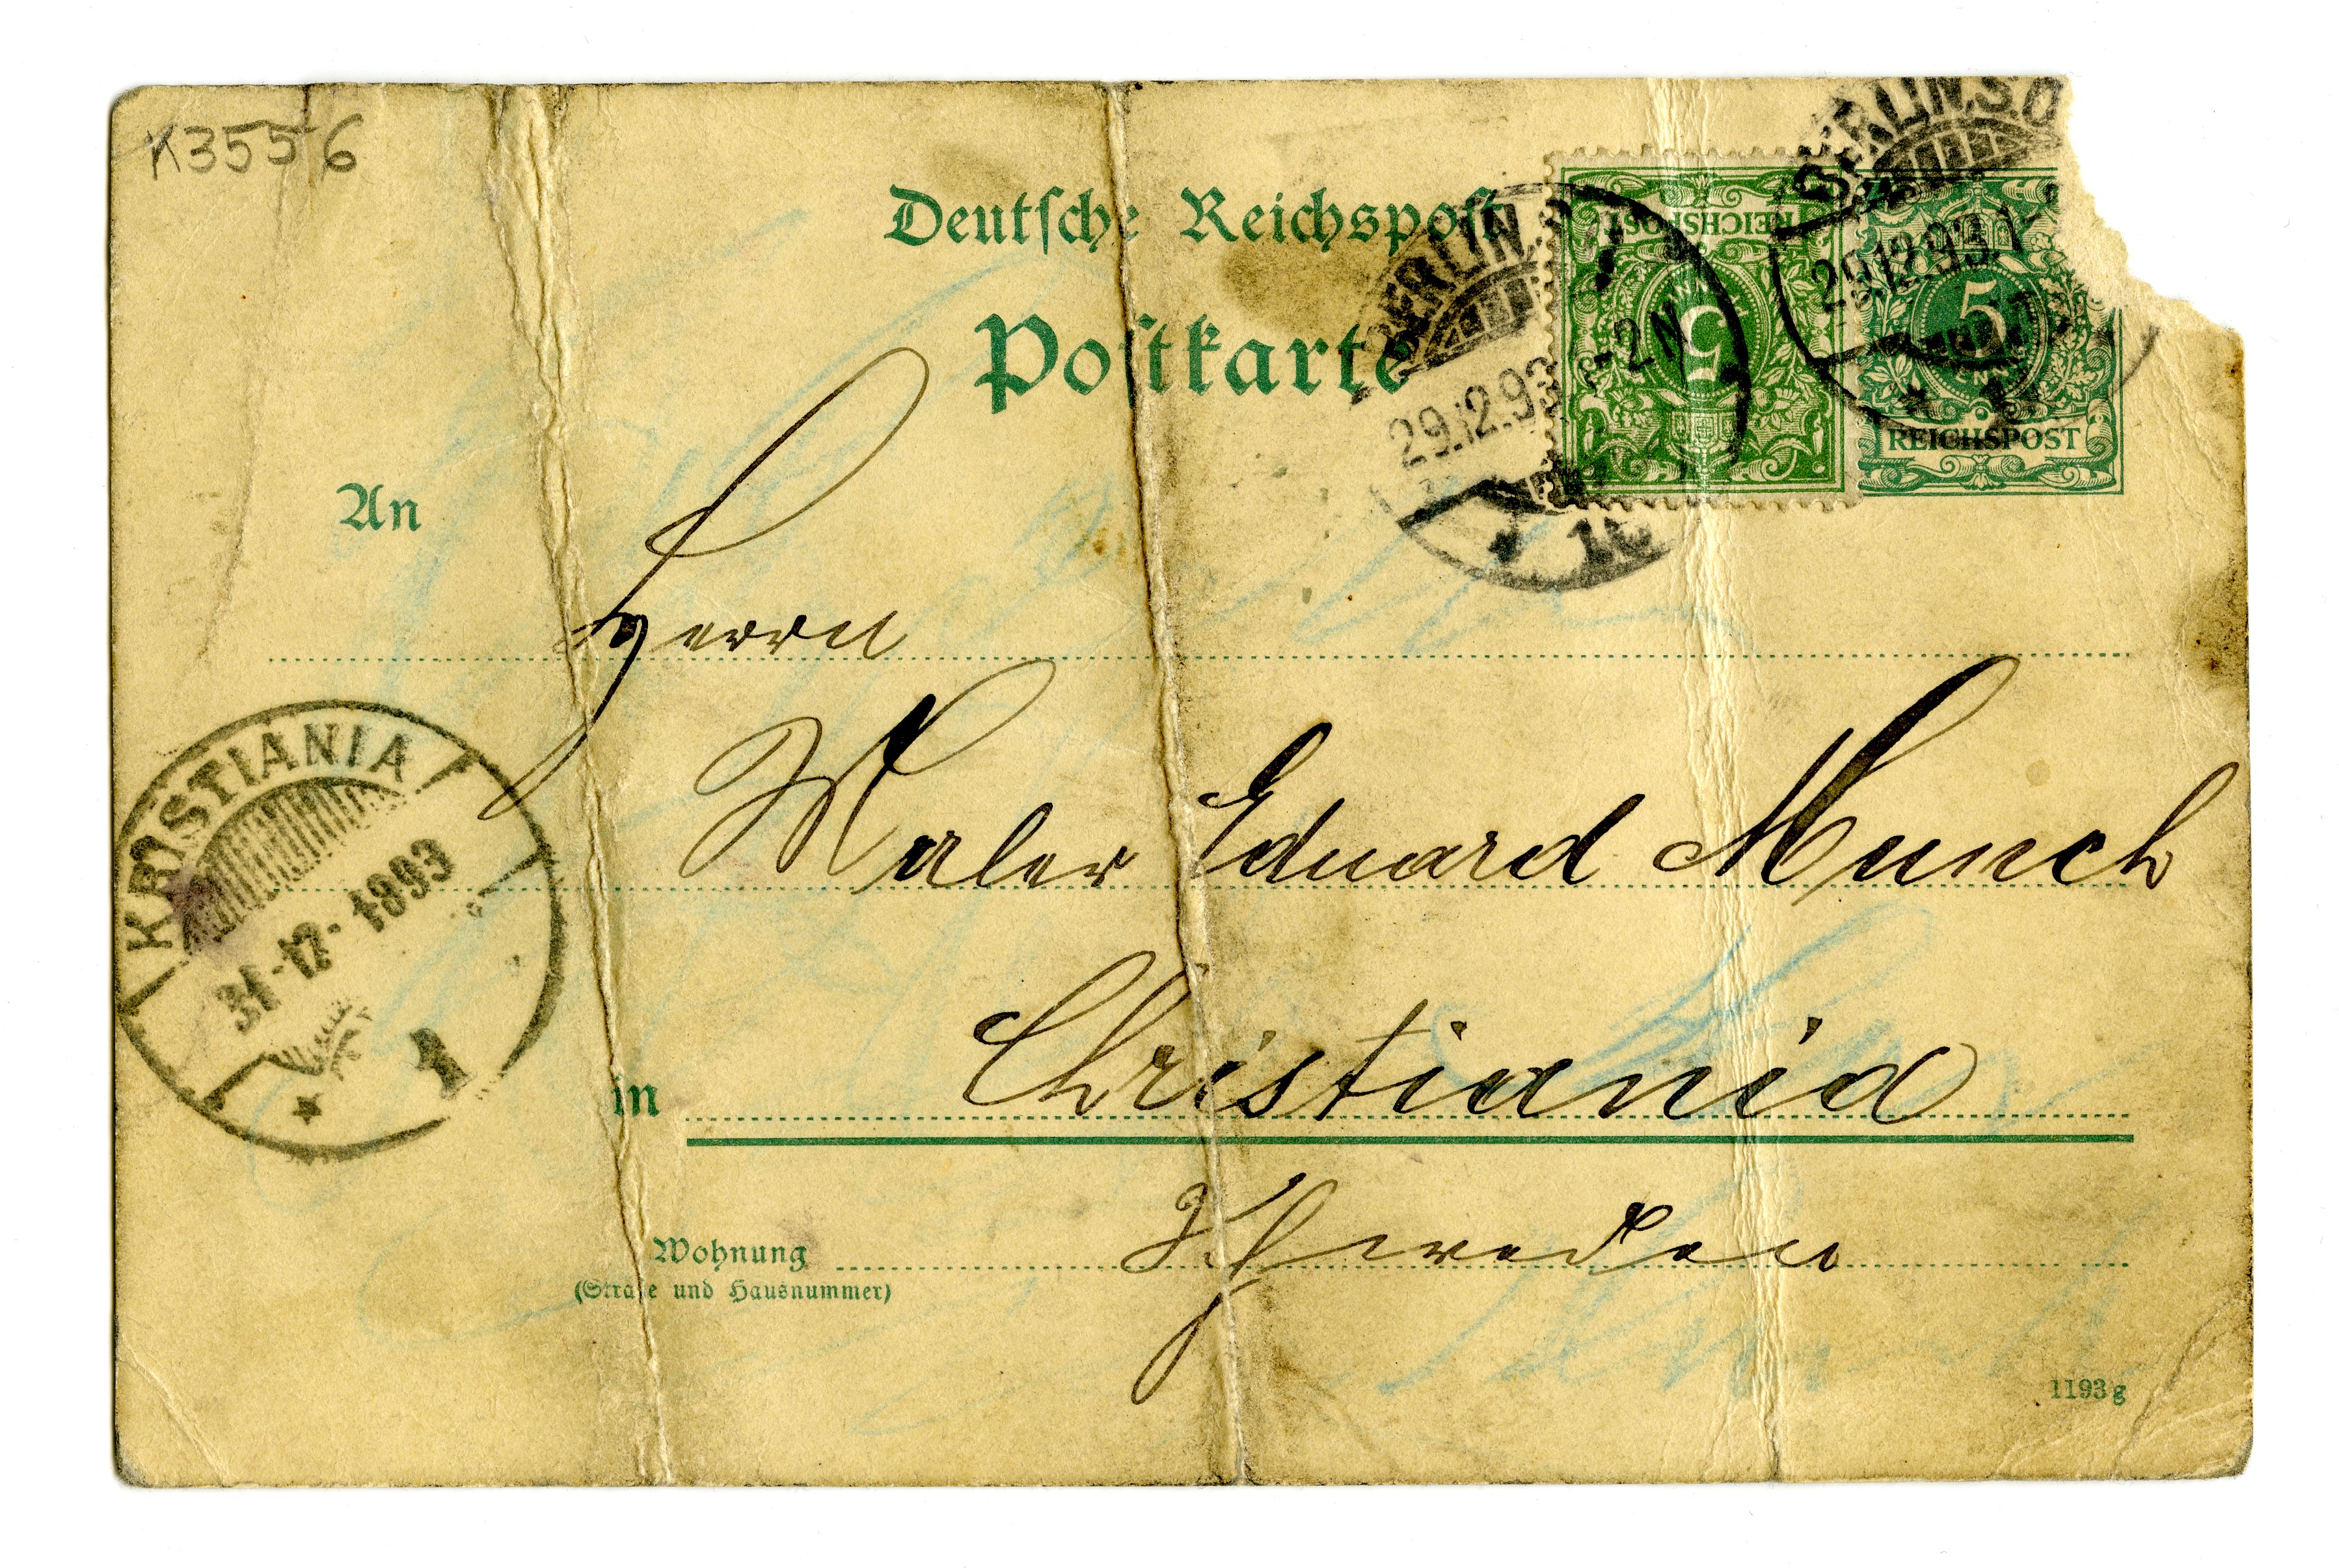 K3556
Deutsche Reichspost
Postkarte
BERLIN.S.O
29.12.93.1-
5
REICHSPOST
BERLIN.
29.12.93 1-2N
16
REICHSPOST
5
An
Herrn
Maler Eduard Munch
in Christiania
Wohnung Schweden
(Straße und Hausnummer)
KRISTIANIA
31-12-1893
1
1193g